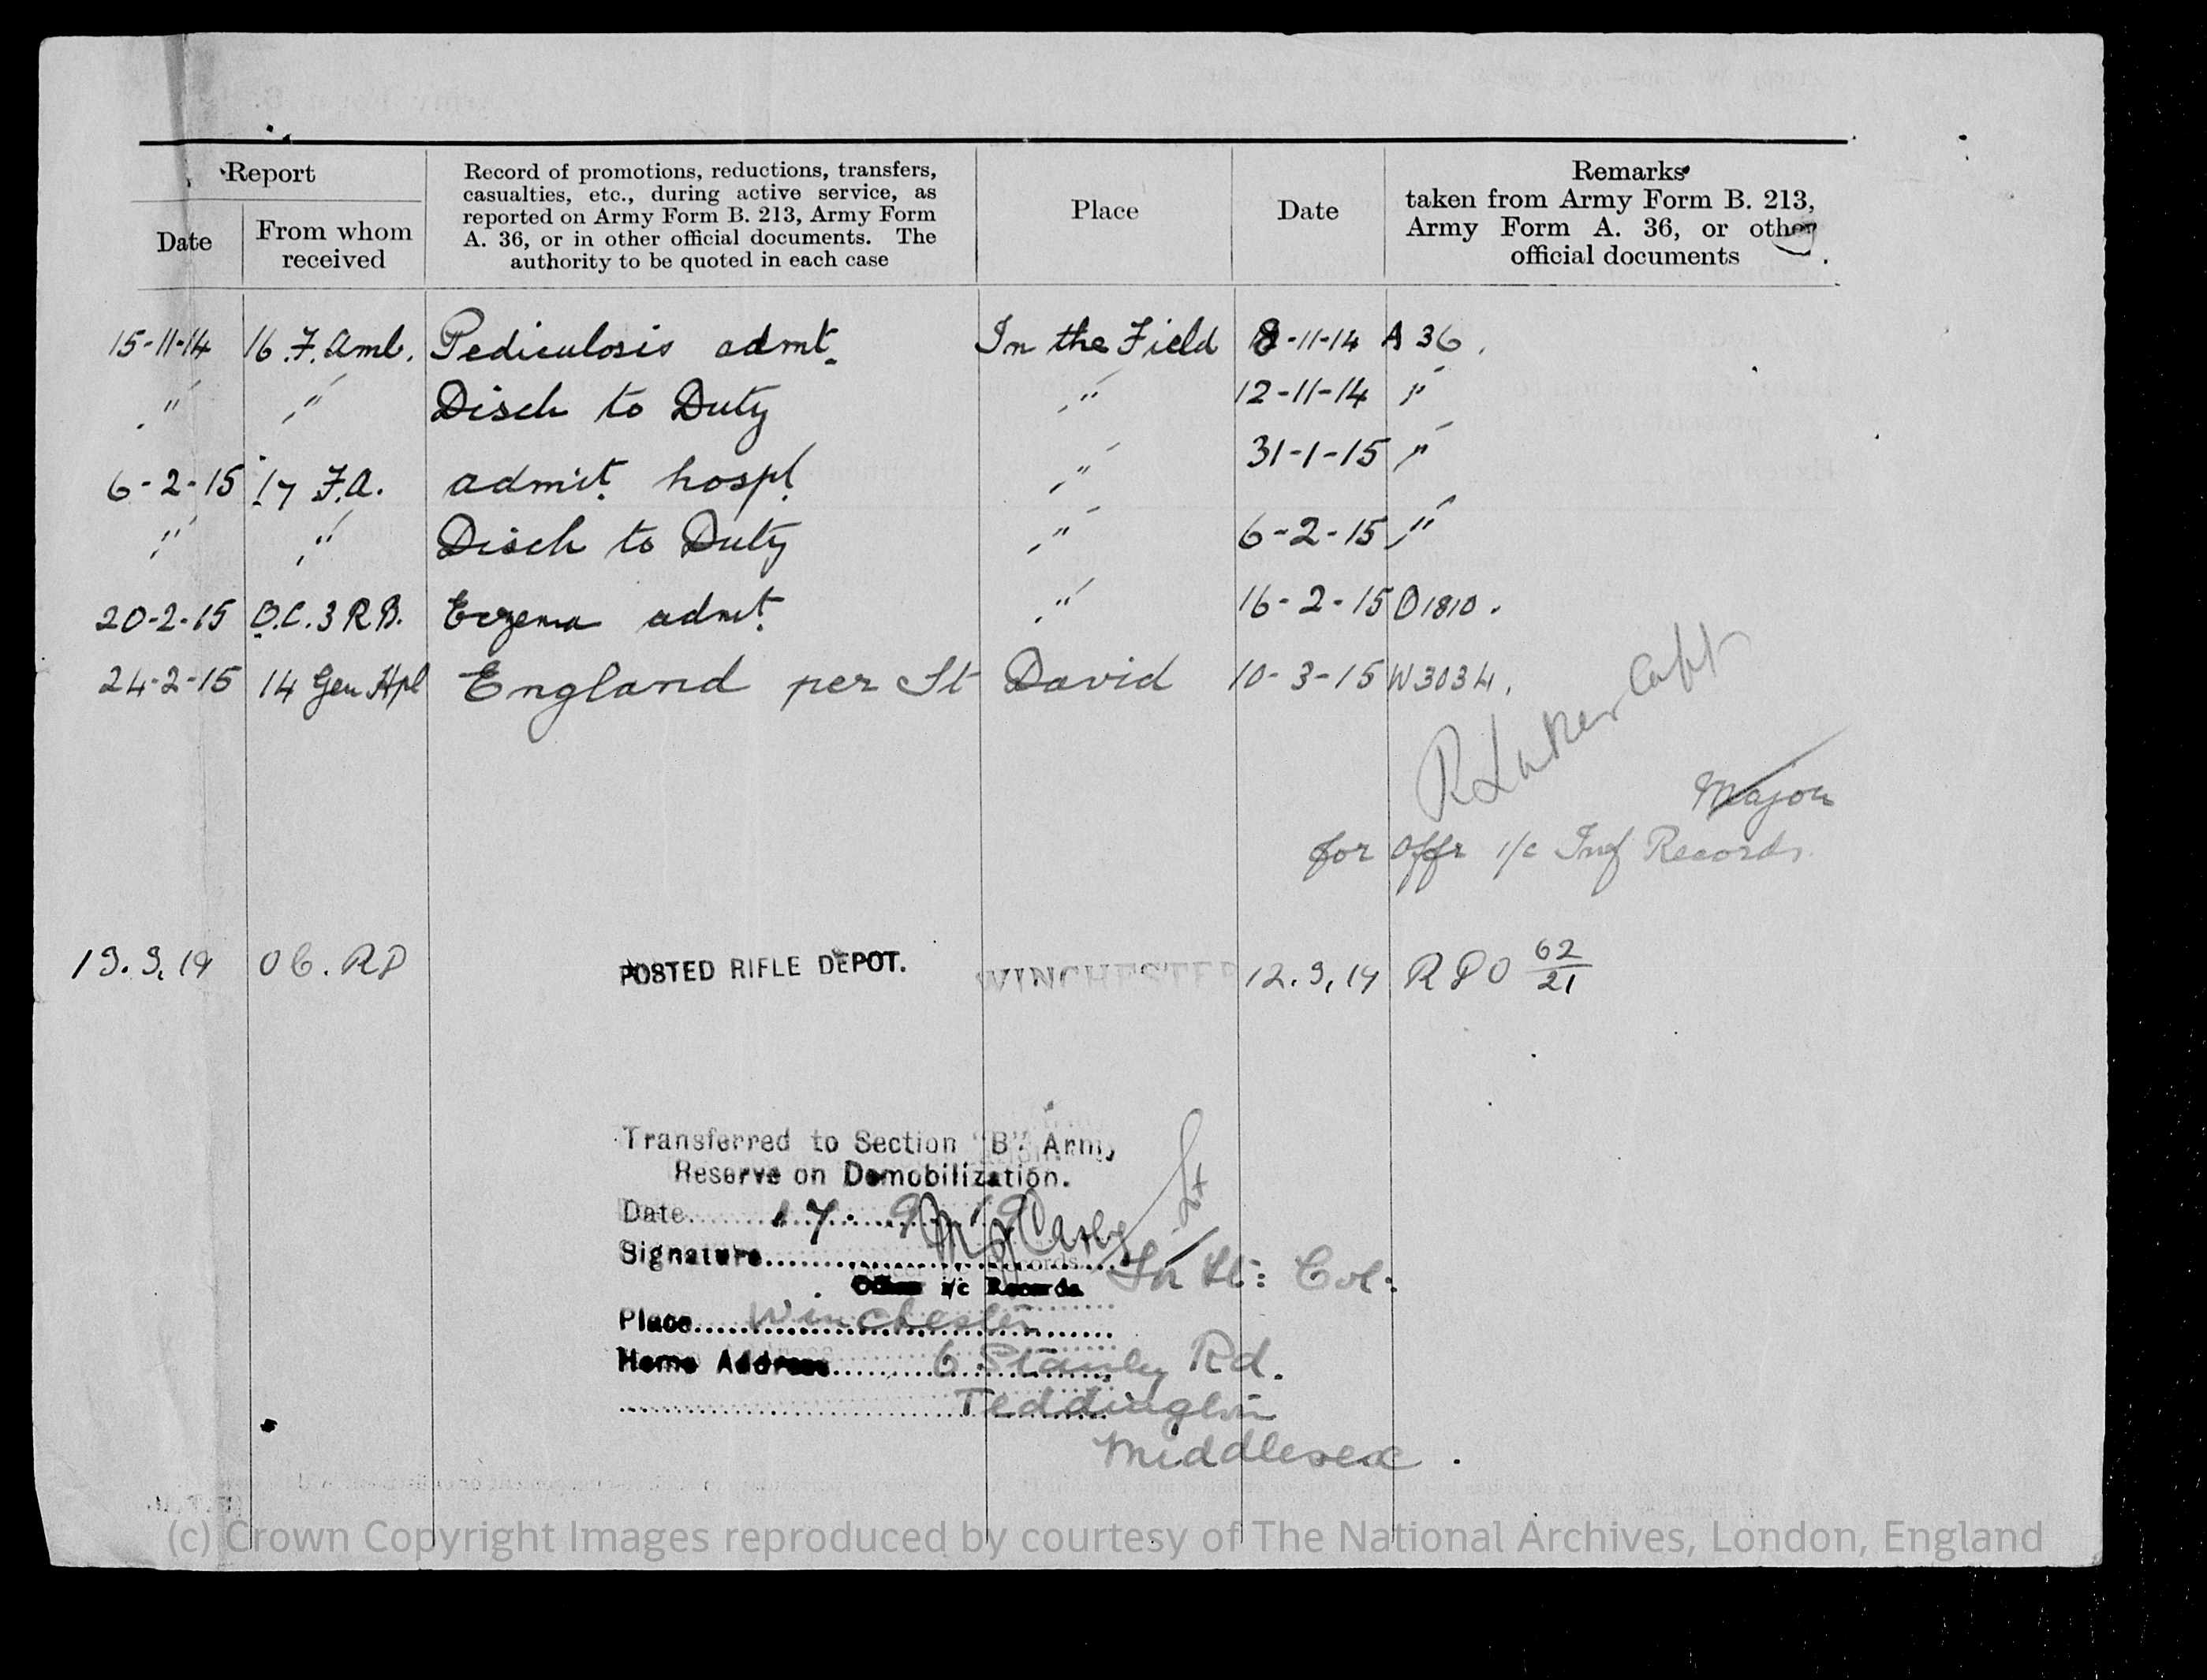 Report
Date
From whom
received
Record of promotions, reductions, transfers,
casualties, etc., during active service, as
reported on Army Form B. 213, Army Form
A. 36, or in other official documents. The
authority to be quoted in each case
Place
Date
Remarks
taken from Army Form B. 213,
Army Form A. 36, or other
official documents
15-11-14 16.F.Amb. Pediculosis admt. In the Field 8-11-14 A 36.
" " Disch to Duty " 12-11-14 "
6-2-15 17 F.A. admit. hospl. " 31-1-15 "
" " Disch to Duty " 6-2-15 "
20-2-15 O.C. 3 R.B. Eczema admt. " 16-2-15 D1810.
24-2-15 14 Gen Hpl England per St David 10-3-15 W3034.
Capt
Major
for Offr i/c Inf Records.
13.9.19 OC. RD POSTED RIFLE DEPOT. WINCHESTER 12.9.19 R D O 62/21
Transferred to Section "B". Army
Reserve on Demobilization.
Date 17. 9. 19
Signature Lt
i/c Records Lt: Col:
Place Winchester
Home Address 6 Stanley Rd.
Teddington
Middlesex.
(c) Crown Copyright Images reproduced by courtesy of The National Archives, London, England